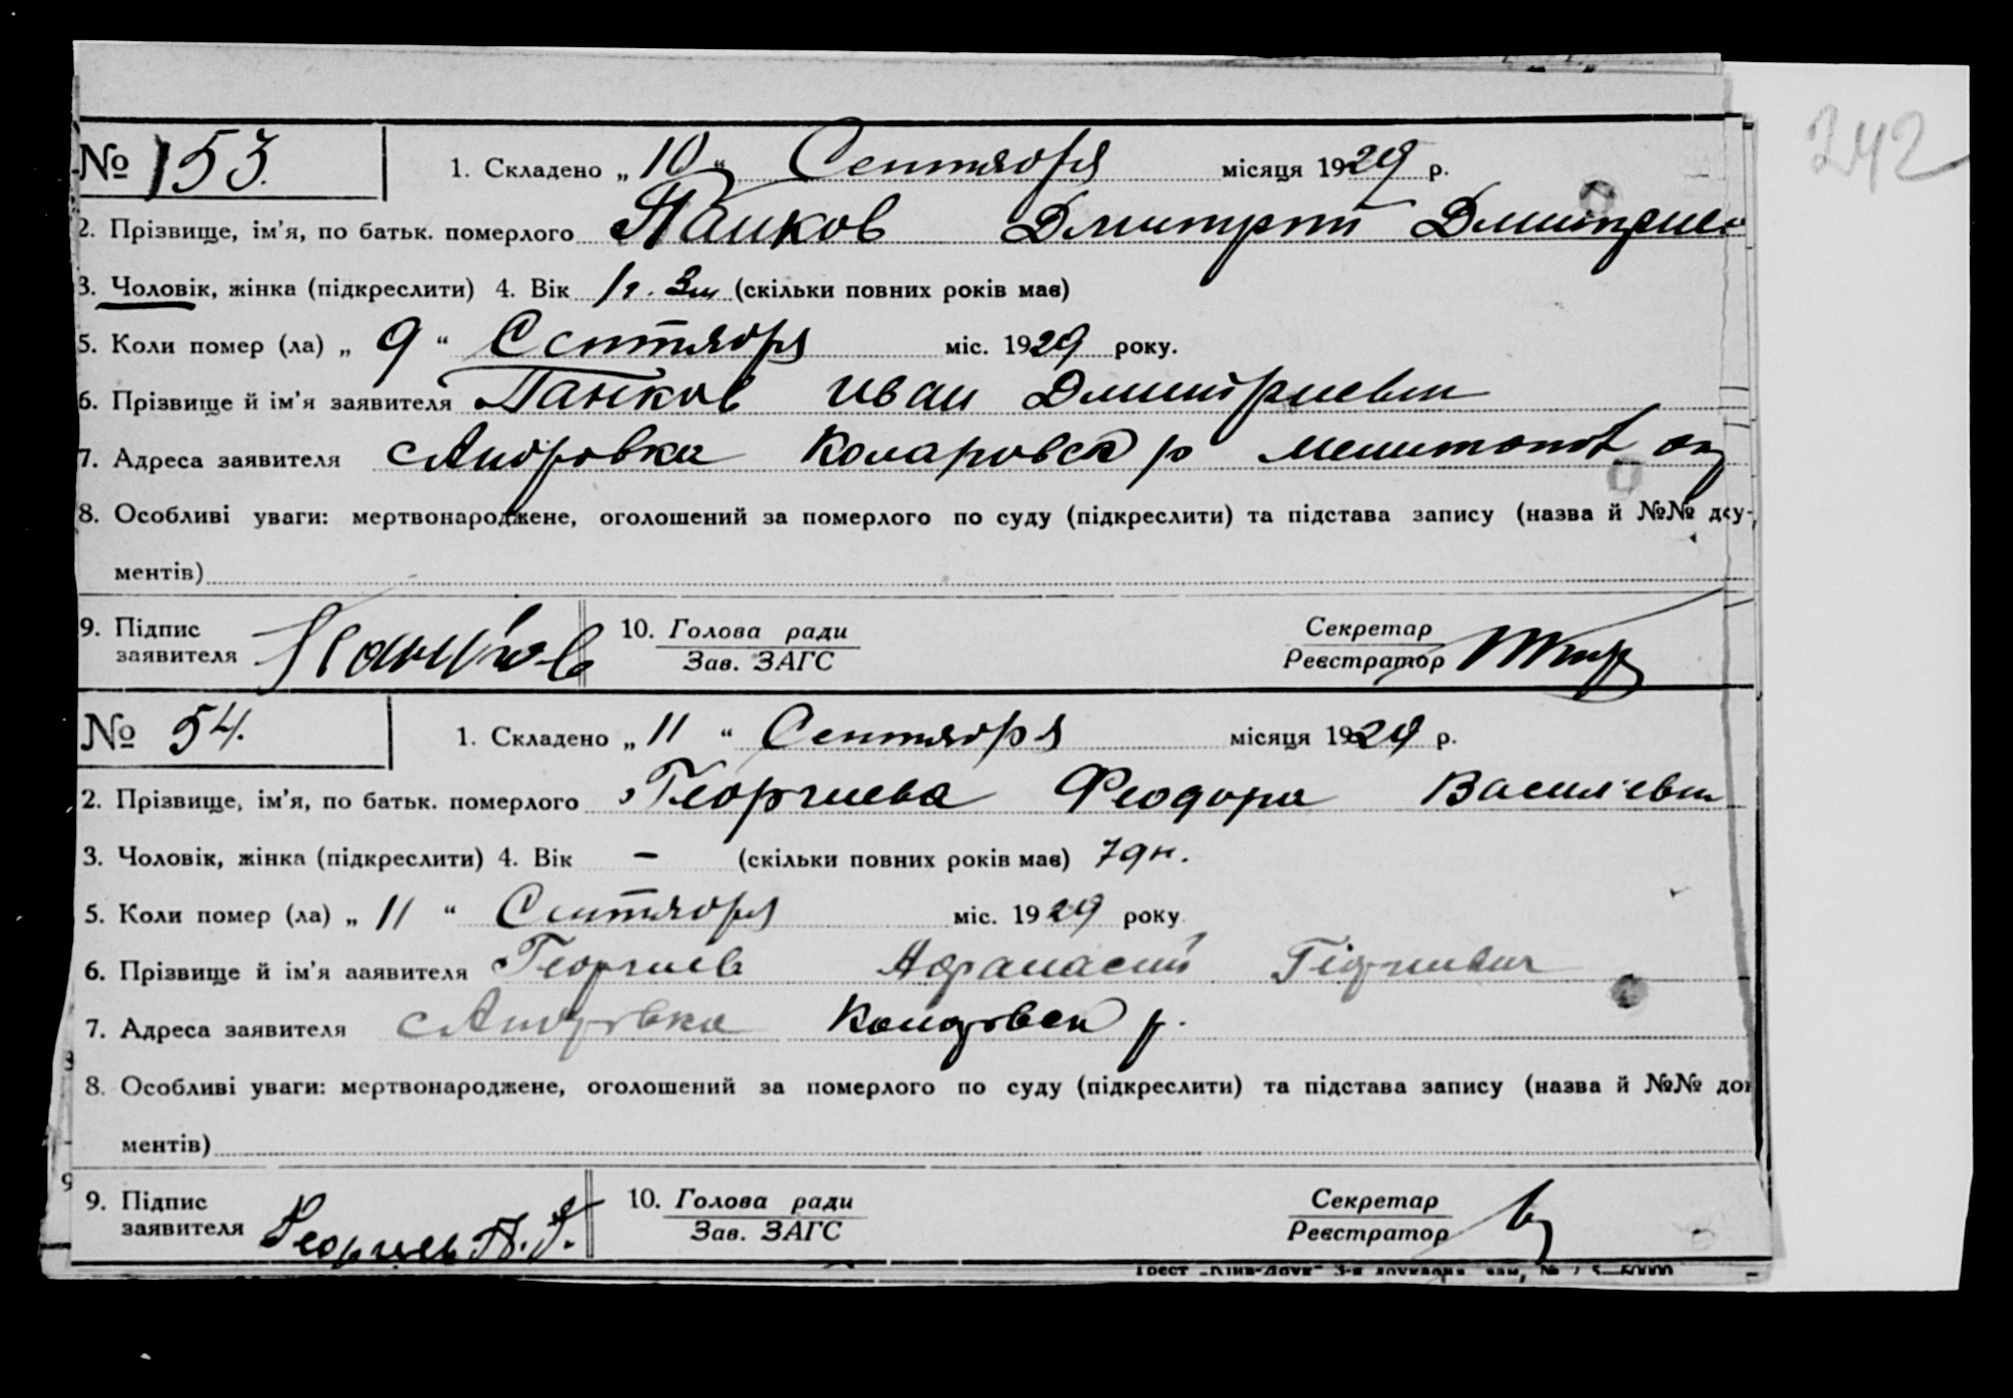 242
№ 153. 1. Складено „ 10 “ Сентября місяця 1929 р.
2. Прізвище, ім’я, по батьк. померлого Панков Дмитрий Дмитриев
3. Чоловік, жінка (підкреслити) 4. Вік 1 г. 3 м (скільки повних років мав)
5. Коли помер (ла) „ 9 “ Сентября міс. 1929 року.
6. Прізвище й ім’я заявителя Панков Иван Дмитриевич
7. Адреса заявителя с Андровка Коларовск р Мелитопол ок
8. Особливі уваги: мертвонароджене, оголошений за померлого по суду (підкреслити) та підстава запису (назва й №№ доку-
ментів)
9. Підпис заявителя Панков 10. Голова ради Секретар
Зав. ЗАГС Реєстратор
№ 54. 1. Складено „ 11 “ Сентября місяця 1929 р.
2. Прізвище, ім’я, по батьк. померлого Георгиева Феодора Васильевн
3. Чоловік, жінка (підкреслити) 4. Вік – (скільки повних років мав) 7 дн.
5. Коли помер (ла) „ 11 “ Сентября міс. 1929 року
6. Прізвище й ім’я заявителя Георгиев Афанасий Георгиевич
7. Адреса заявителя с Андровка Коларовск р.
8. Особливі уваги: мертвонароджене, оголошений за померлого по суду (підкреслити) та підстава запису (назва й №№ док
ментів)
9. Підпис заявителя Георгиев 10. Голова ради Секретар
Зав. ЗАГС Реєстратор